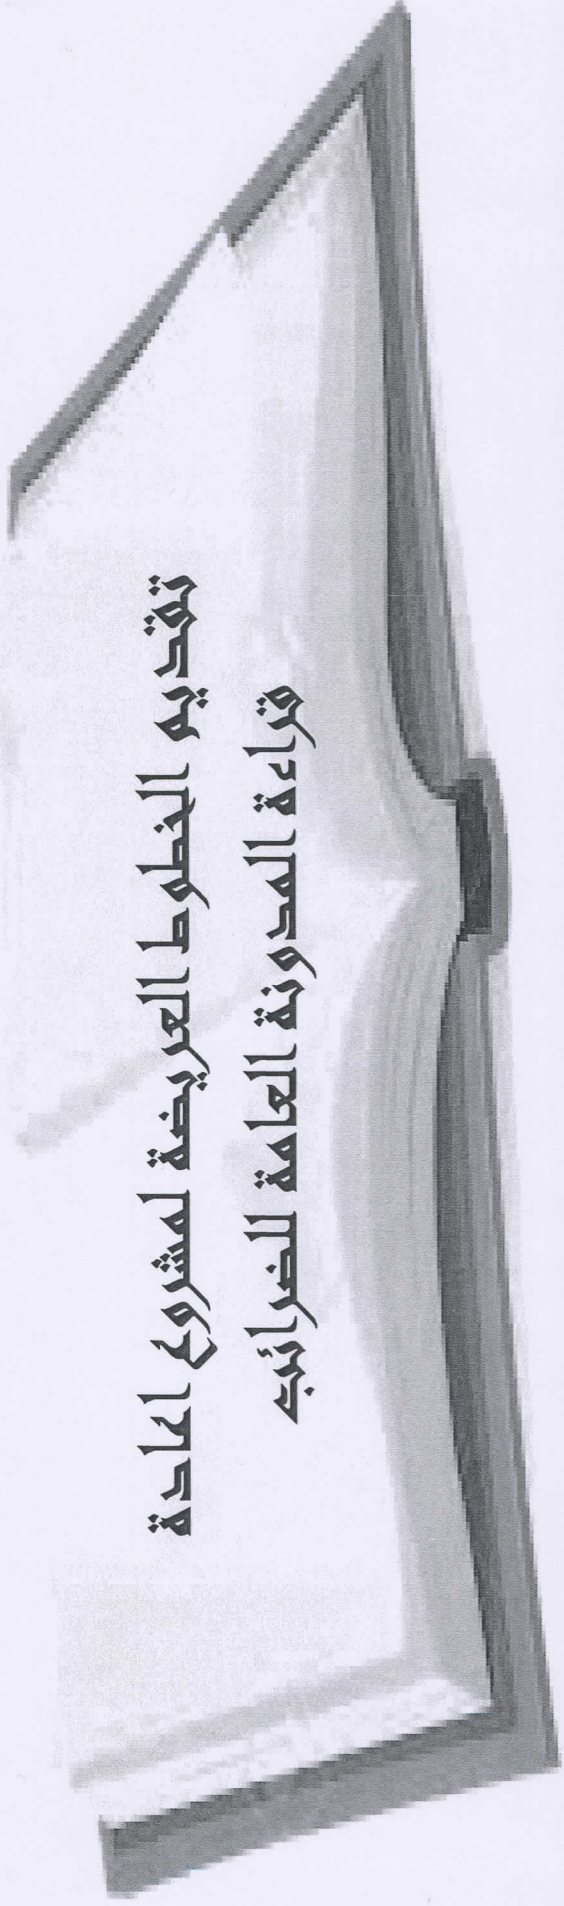 تقديم الخطوط العريضة لمشروع إعادة
قراءة المدونة العامة